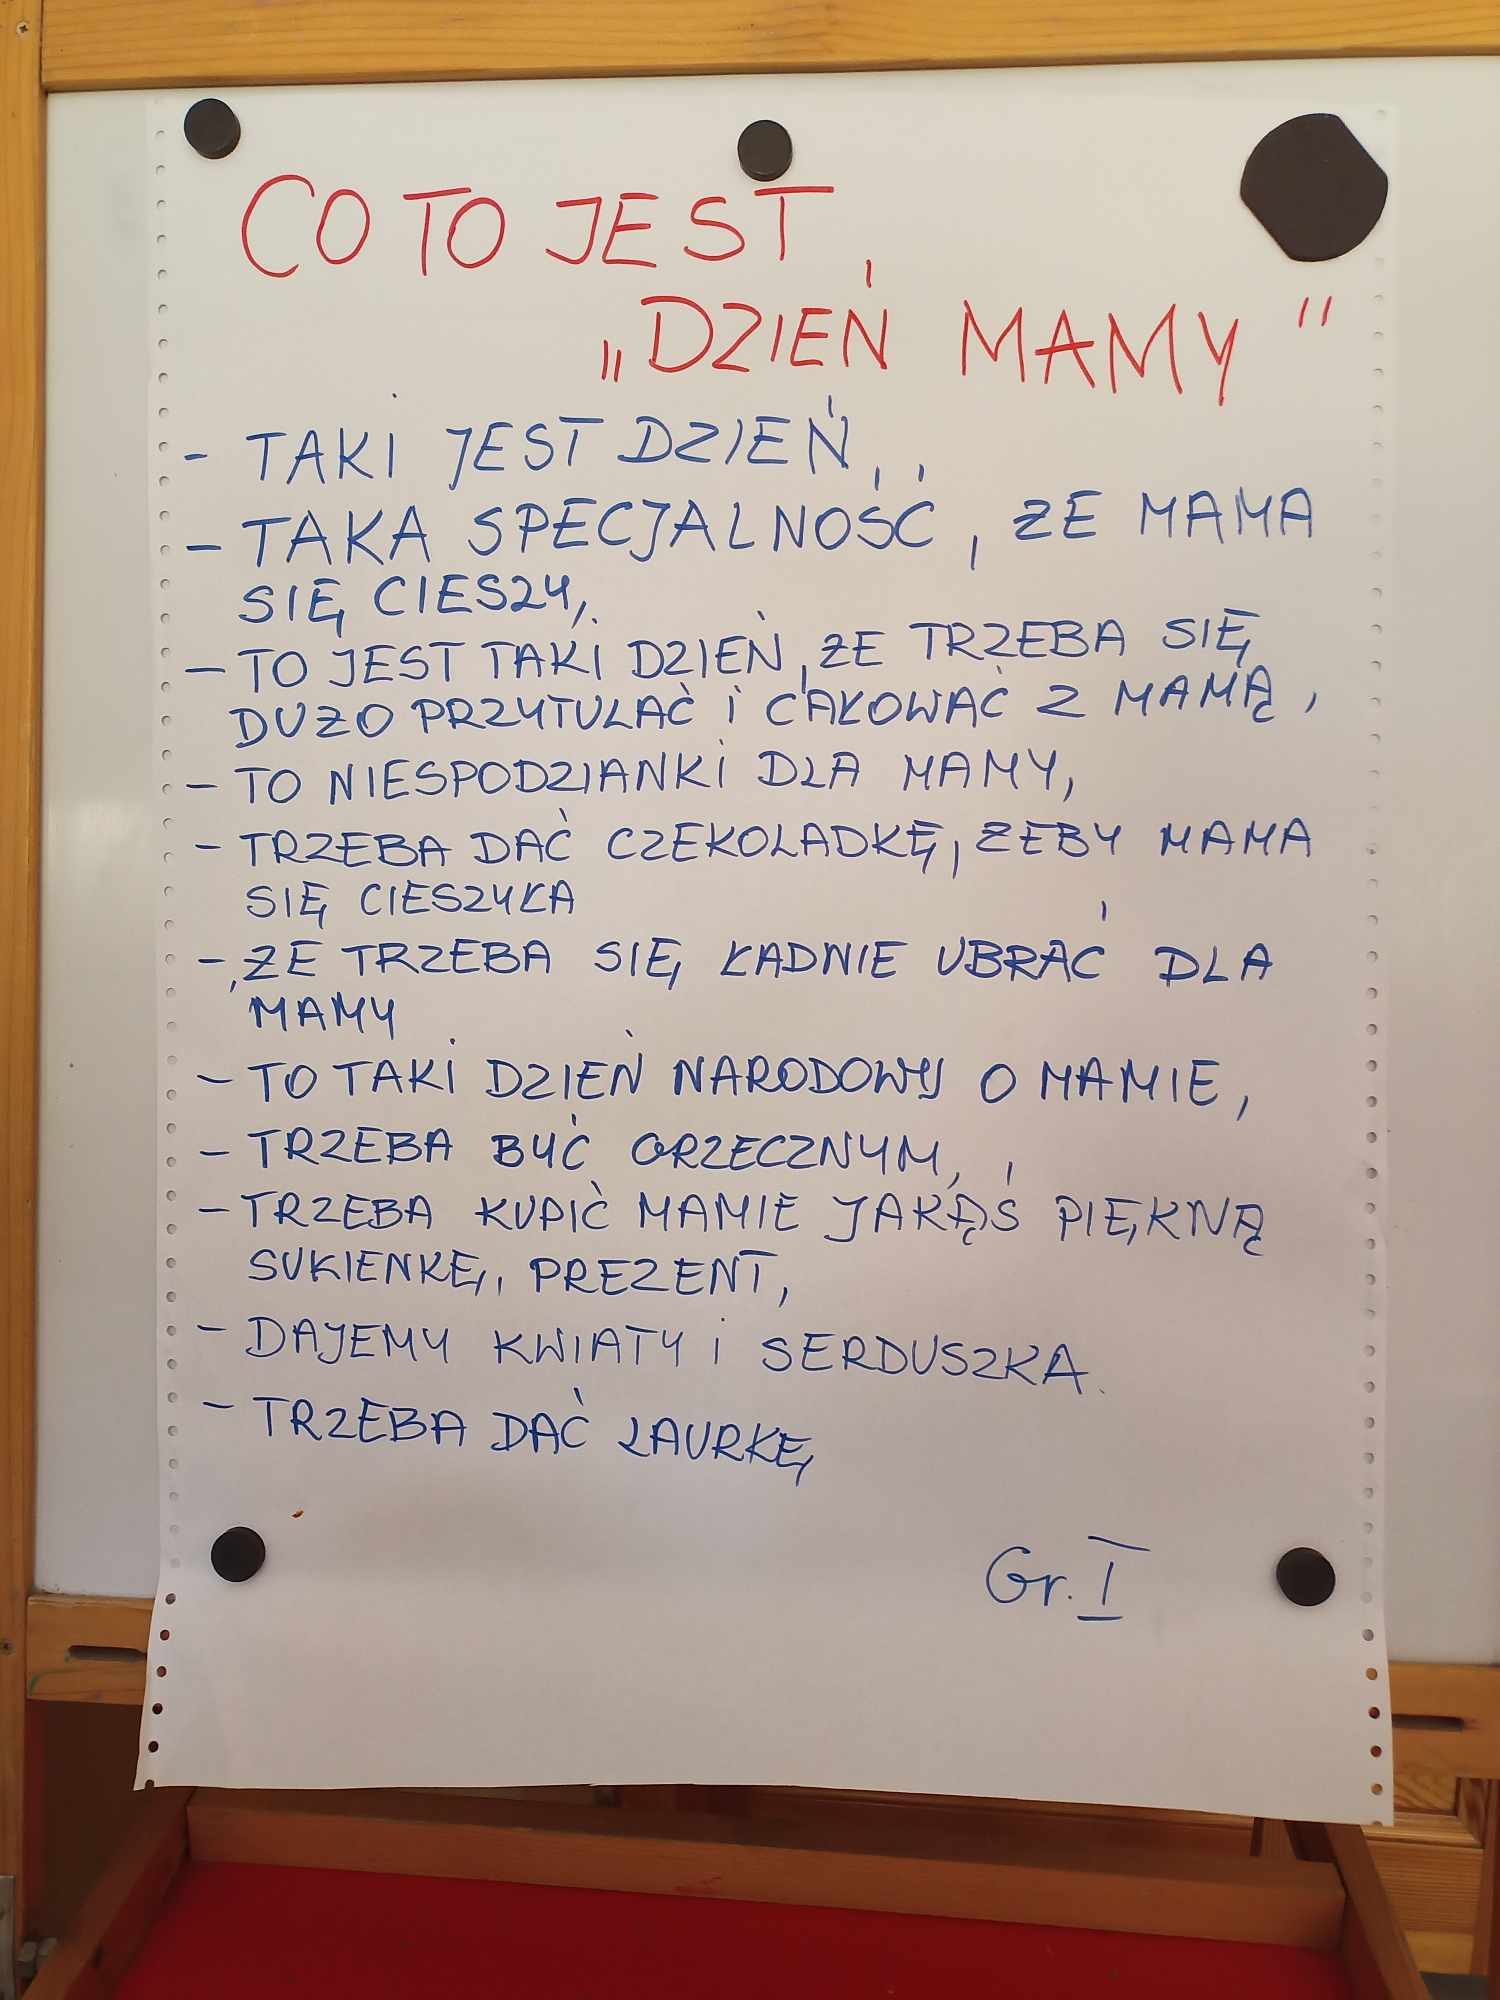 CO TO JEST
„DZIEŃ MAMY"
- TAKI JEST DZIEŃ,
- TAKA SPECJALNOŚĆ, ŻE MAMA
SIĘ CIESZY,
- TO JEST TAKI DZIEŃ, ŻE TRZEBA SIĘ
DUŻO PRZYTULAĆ I CAŁOWAĆ Z MAMĄ,
- TO NIESPODZIANKI DLA MAMY,
- TRZEBA DAĆ CZEKOLADKĘ, ŻEBY MAMA
SIĘ CIESZYŁA
- ŻE TRZEBA SIĘ ŁADNIE UBRAĆ DLA
MAMY
- TO TAKI DZIEŃ NARODOWY O MAMIE,
- TRZEBA BYĆ GRZECZNYM,
- TRZEBA KUPIĆ MAMIE JAKĄŚ PIĘKNĄ
SUKIENKĘ, PREZENT,
- DAJEMY KWIATY I SERDUSZKA.
- TRZEBA DAĆ LAURKĘ
Gr. I